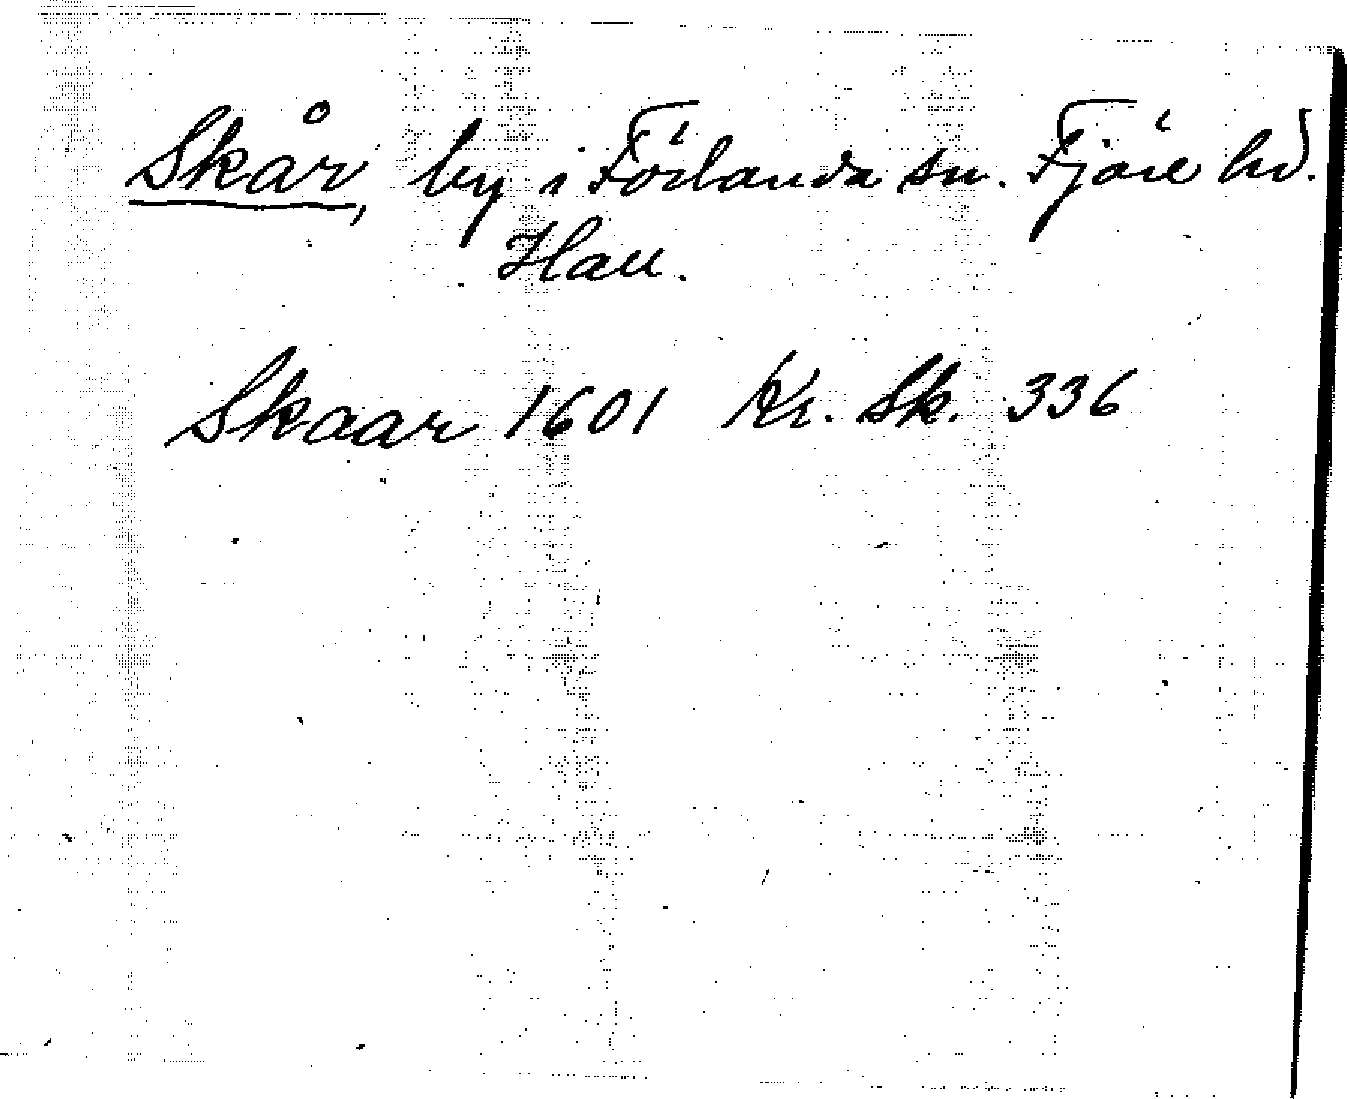 Skår, by i Förlanda sn. Fjäre hd.
Hall.
Skaar 1601 Kr. Sk. 336